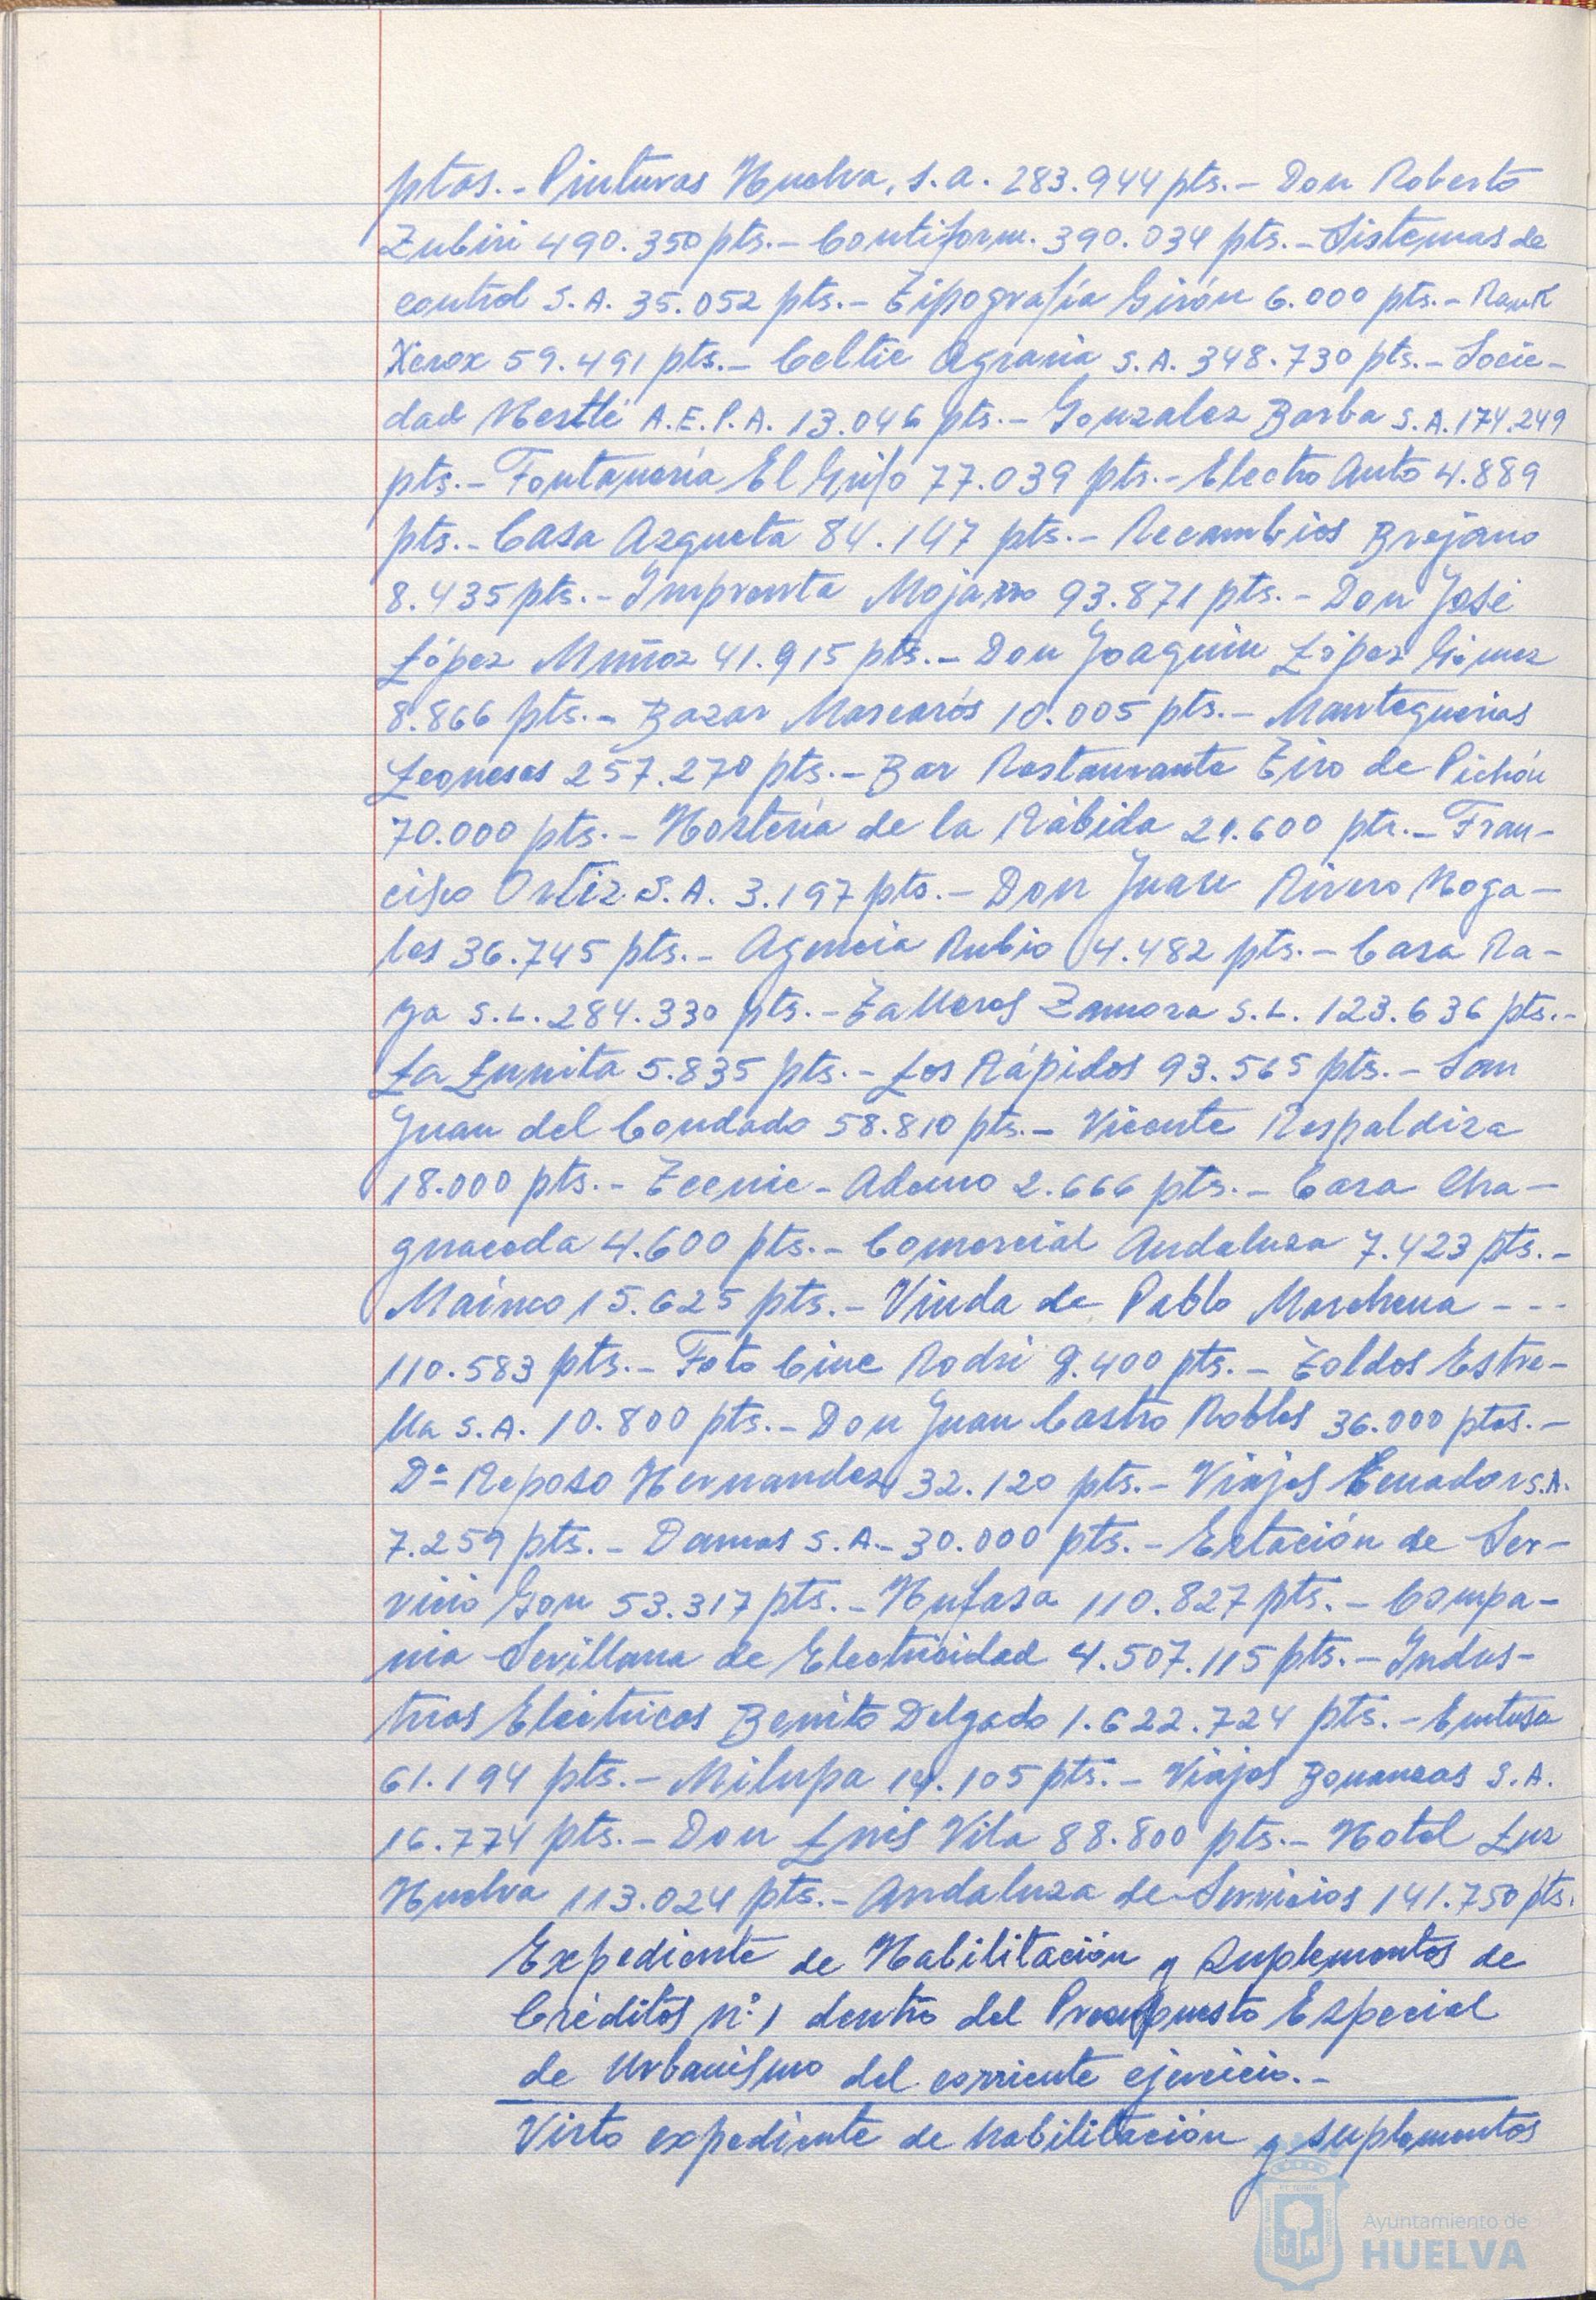 ptas.- Pinturas Huelva, S.A. 283.944 pts.- Don Roberto
Zubiri 490.350 pts.- Contiform. 390.034 pts.- Sistemas de
control S.A. 35.052 pts.- Tipografía Girón 6.000 pts.- Rank
Xerox 59.491 pts.- Celtic Agraria S.A. 348.730 pts.- Socie-
dad Nestlé A.E.P.A. 13.046 pts.- Gonzalez Barba S.A. 174.249
pts.- Fontanería El Grifo 77.039 pts.- Electro Auto 4.889
pts.- Casa Azqueta 84.147 pts.- Recambios Brejano
8.435 pts.- Imprenta Mojarro 93.871 pts.- Don José
López Muñoz 41.915 pts.- Don Joaquin López Gómez
8.866 pts.- Bazar Mascarós 10.005 pts.- Mantequerias
Leonesas 257.270 pts.- Bar Restaurante Tiro de Pichón
70.000 pts.- Hostería de la Rábida 21.600 pts.- Fran-
cisco Ortiz S.A. 3.197 pts.- Don Juan Rivero Noga-
les 36.745 pts.- Agencia Rubio 4.482 pts.- Casa Ra-
ya S.L. 284.330 pts.- Talleres Zamora S.L. 123.636 pts.-
La Lunita 5.835 pts.- Los Rápidos 93.565 pts.- San
Juan del Condado 58.810 pts.- Vicente Respaldiza
18.000 pts.- Tecnic-Ademo 2.666 pts.- Casa Cha-
guaceda 4.600 pts.- Comercial Andaluza 7.423 pts.-
15.625 pts.- Viuda de Pablo Marchena - - -
110.583 pts.- Foto Cine Rodri 9.400 pts.- Toldos Estre-
lla S.A. 10.800 pts.- Don Juan Castro Robles 36.000 ptas.-
Dª Reposo Hernandez 32.120 pts.- Viajes Ecuador S.A.
7.259 pts.- Damas S.A.- 30.000 pts.- Estación de Ser-
vicio Gon 53.317 pts.- Hufasa 110.827 pts.- Compa-
nia Sevillana de Electricidad 4.507.115 pts.- Indus-
trias Eléctricas Benito Delgado 1.622.724 pts.- Entusa
61.194 pts.- Milupa 14.105 pts.- Viajes Bonanzas S.A.
16.774 pts.- Don Luis Vila 88.800 pts.- Hotel Luz
Huelva 113.024 pts.- Andaluza de Servicios 141.750 pts.
Expediente de Habilitación y Suplementos de
Créditos nº 1 dentro del Presupuesto Especial
de Urbanismo del corriente ejercicio.-
Visto expediente de habilitación y suplementos
Ayuntamiento de
HUELVA